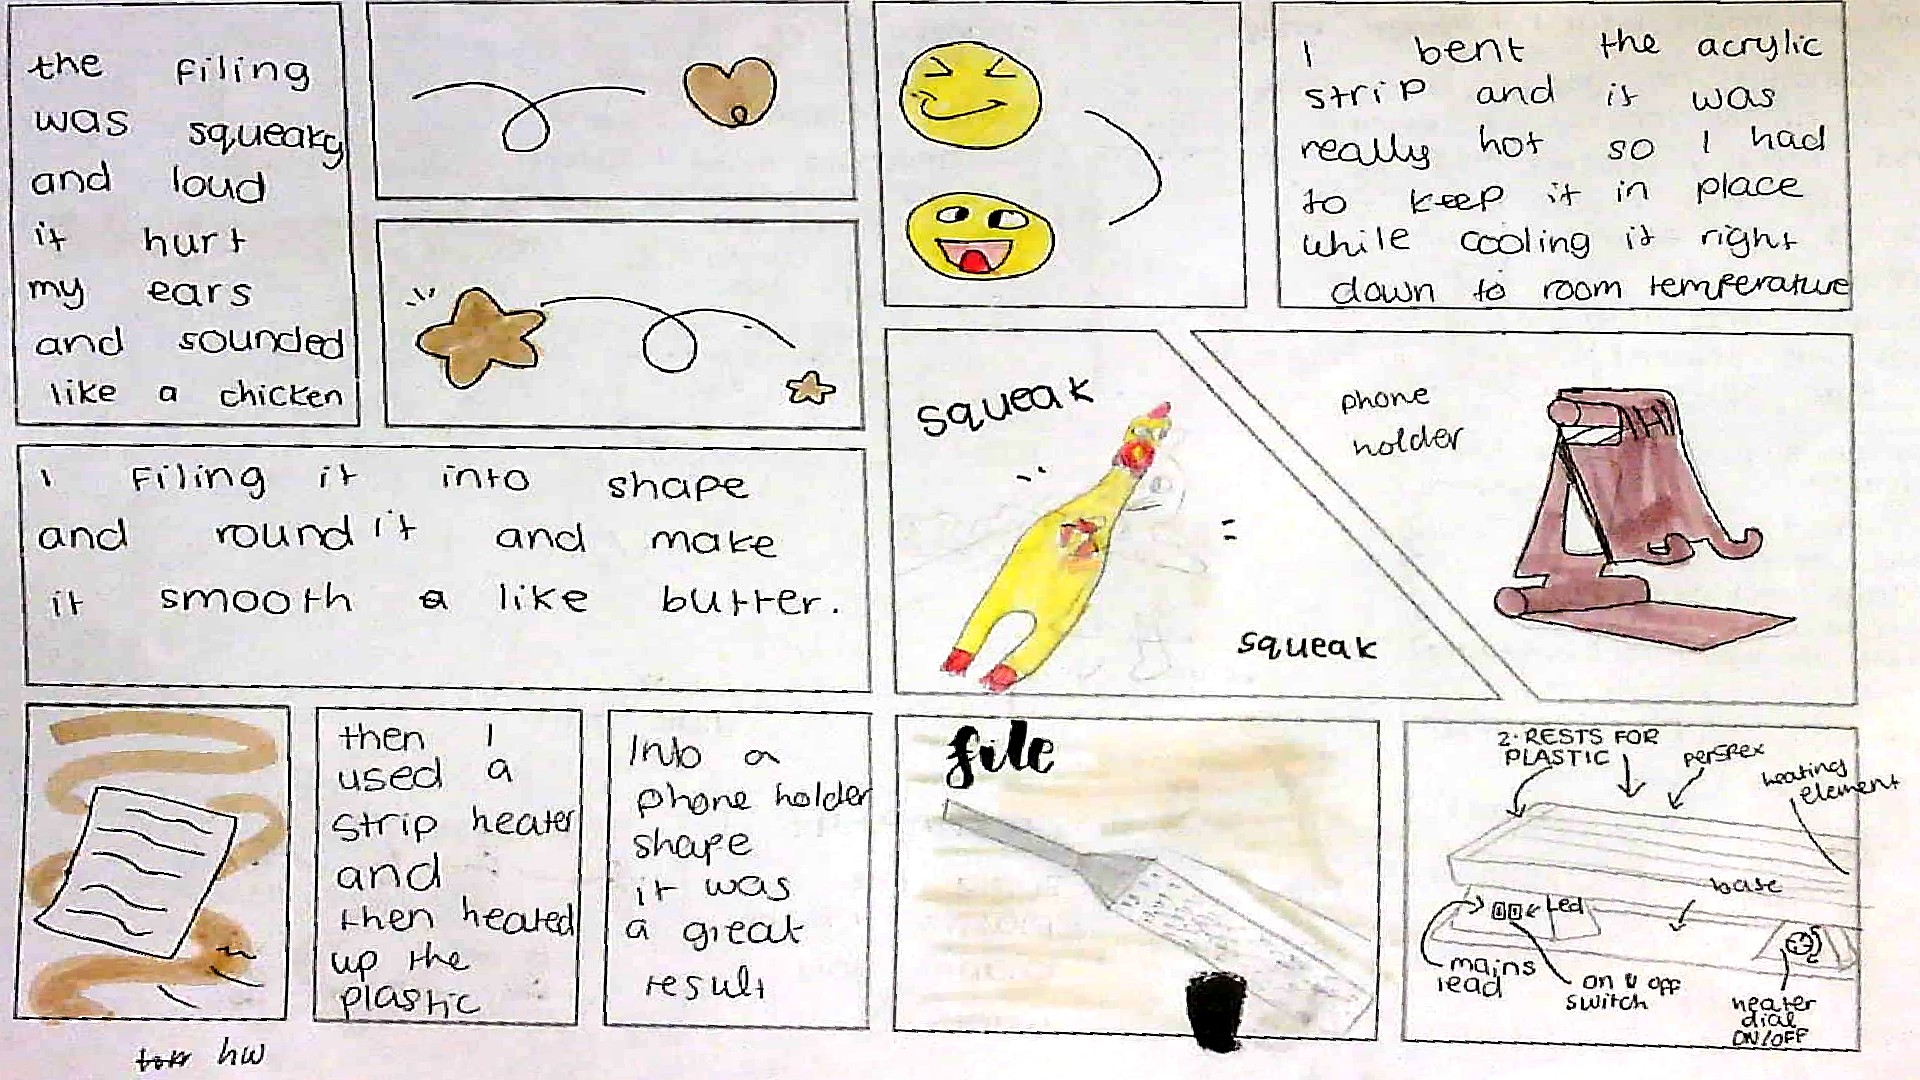 the filing
was squeaky
and loud
it hurt
my ears
and sounded
like a chicken
I bent the acrylic
strip and it was
really hot so I had
to keep it in place
while cooling it right
down to room temperature
I Filing it into shape
and round it and make
it smooth a like butter.
squeak
=
squeak
phone
holder
then I
used a
strip heater
and
then heated
up the
plastic
Into a
phone holder
shape
it was
a great
result
file
2. RESTS FOR
PLASTIC
perspex
heating
element
base
Led
mains
lead
on & off
switch
heater
dial
ON/OFF
hw